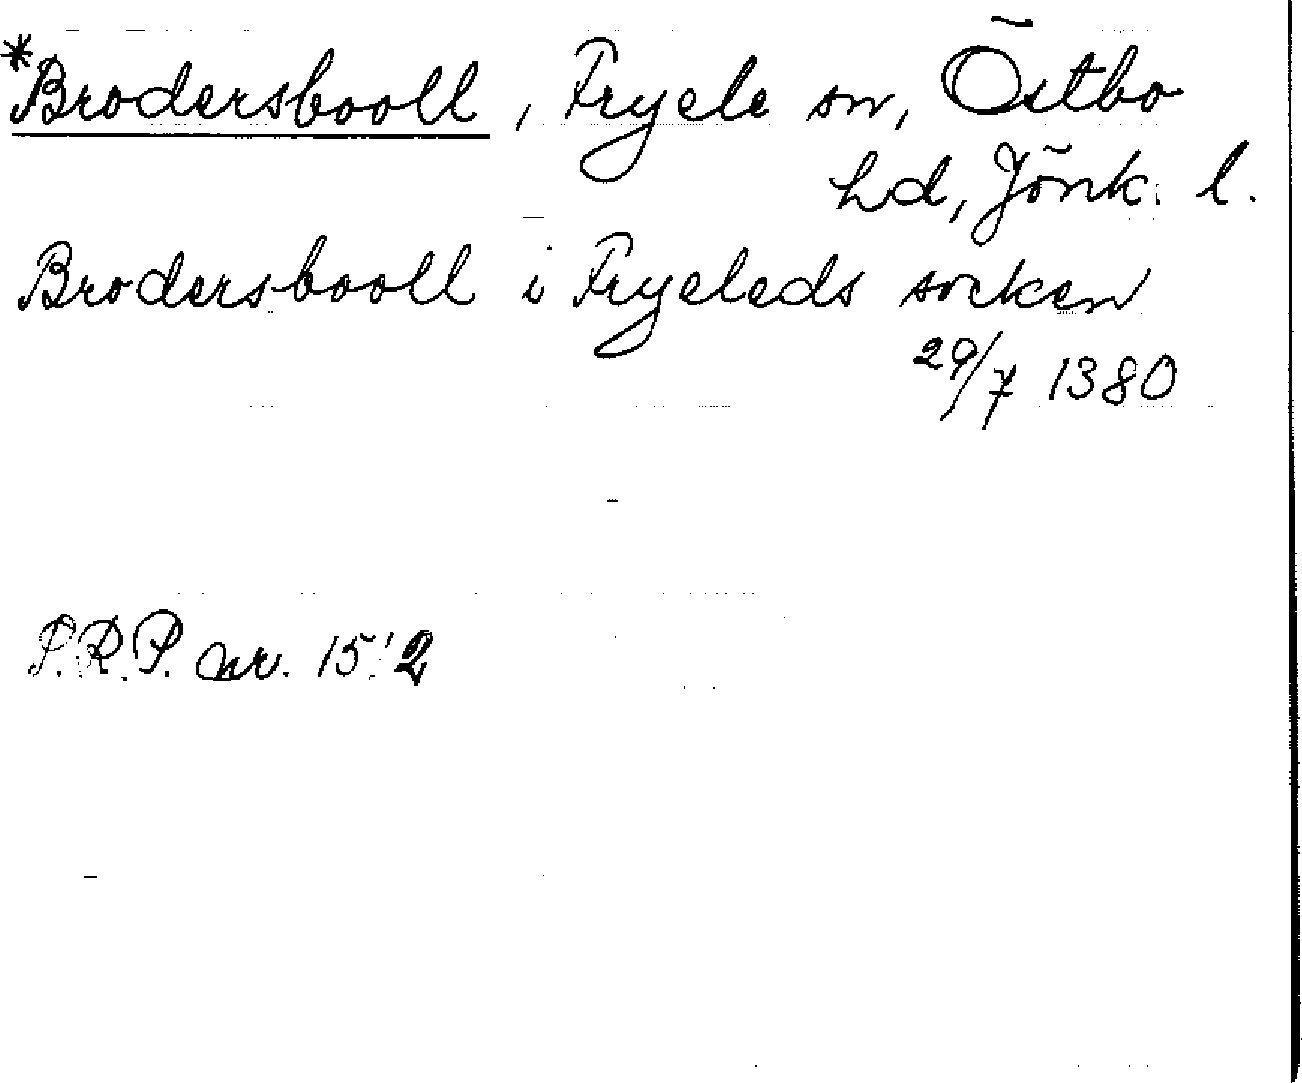 *Brodersbooll, Fryele sn, Östbo
hd, Jönk. l.
Brodersbooll i Fryeleds socken
29/7 1380
P.R.P. nr. 1512